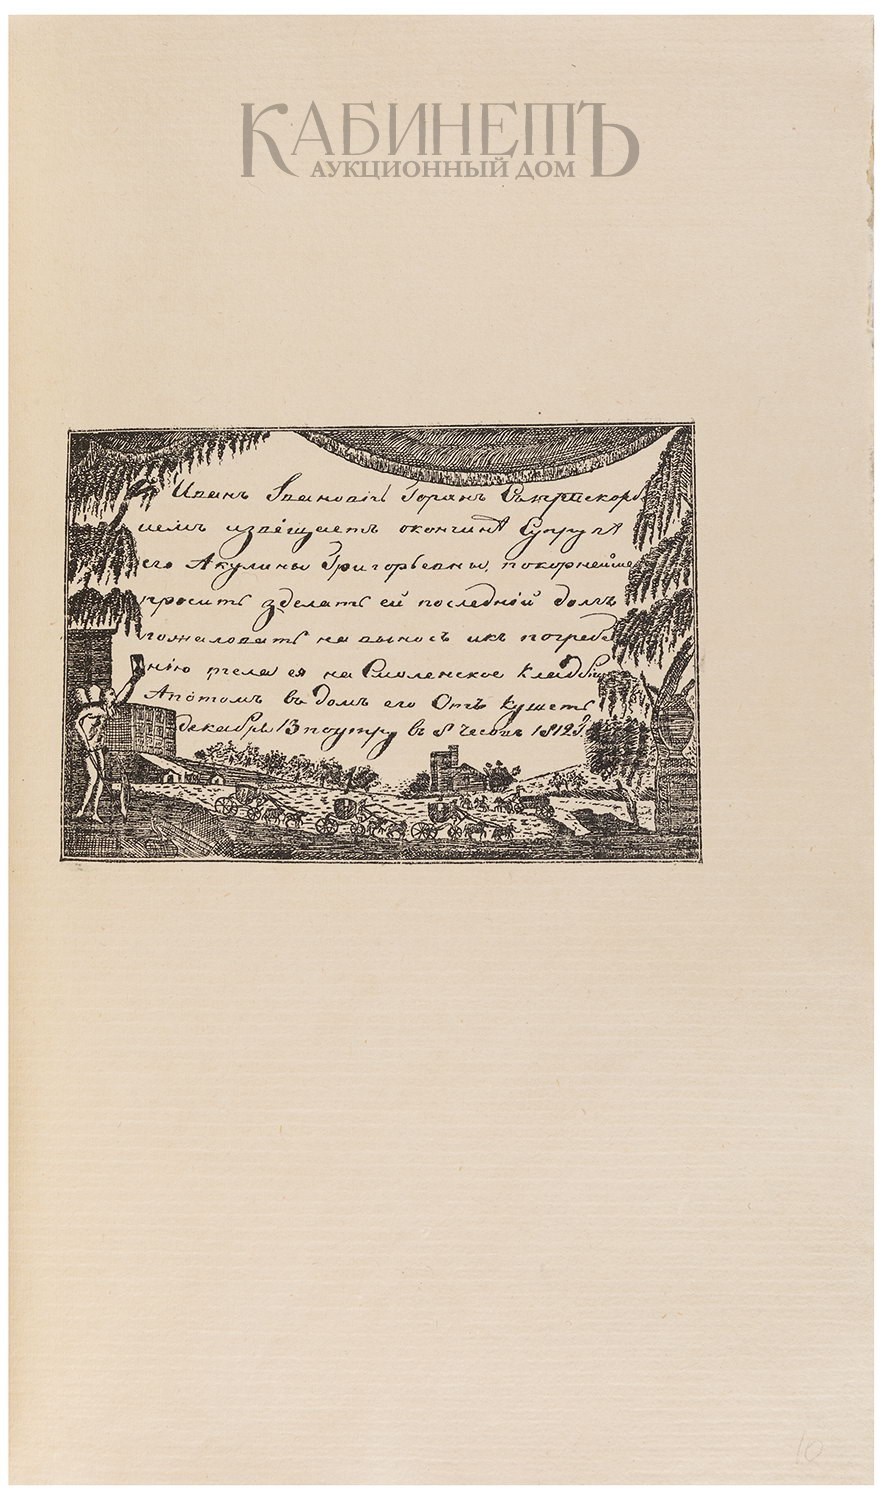 КАБИНЕТЪ
АУКЦИОННЫЙ ДОМ
Иванъ Ивановiчь Горхнъ
иемъ извѣщаетъ окончинѣ Супруги
его Акулины Григорьевны, покорнейше
проситъ зделать ей последнiй долгъ
пожаловать на выносъ икъ погребе
нiю тела ея на Смоленское кладби
Апотомъ въ домъ его Отъ кушеть
декабря 13 поутру въ 8 часовъ 1812
10